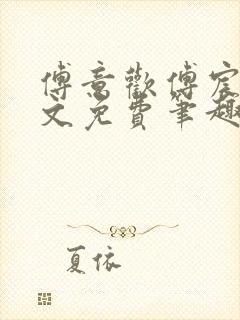 傅意歡傅宸
文免費筆趣
夏依